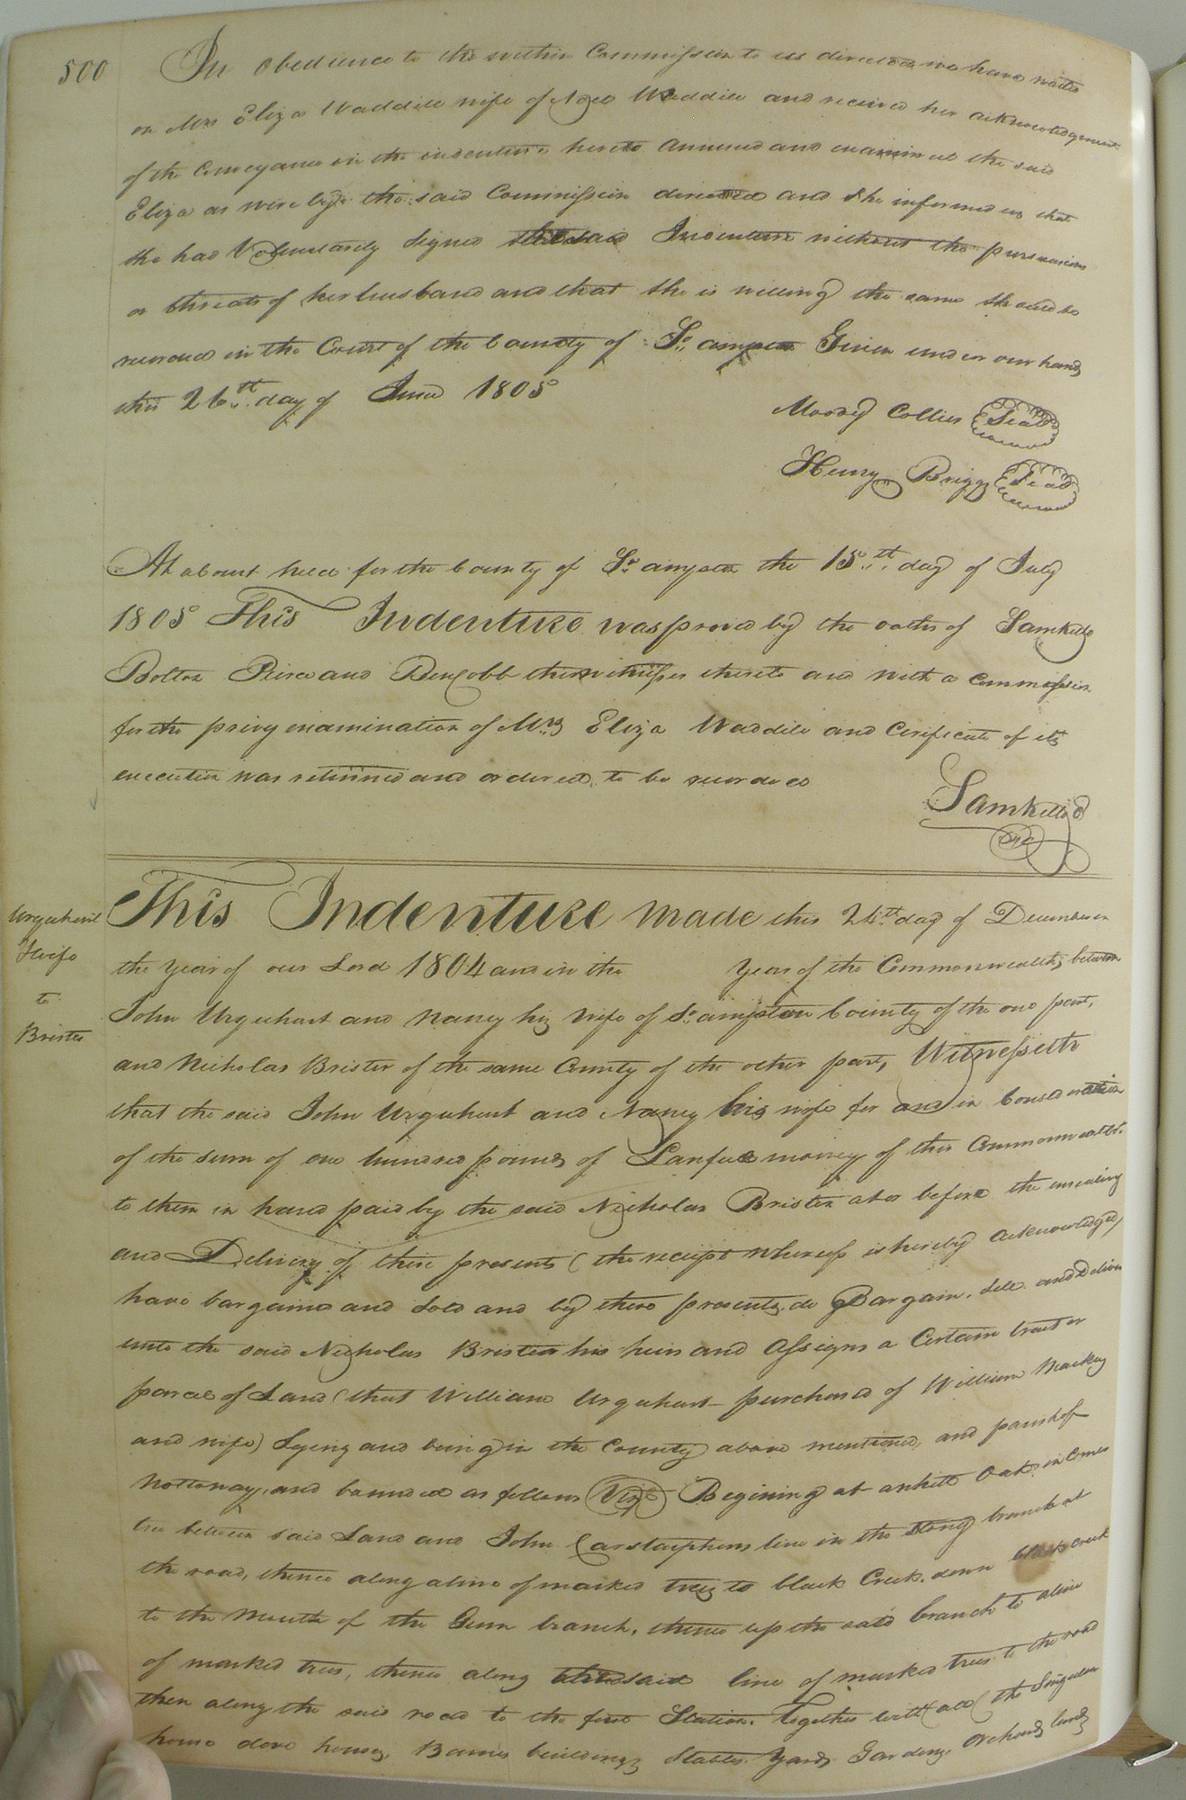 500
In obedience to the within Commission to us directed we have waited
on Mrs Eliza Waddill wife of Noel Waddill and received her acknowledgment
of the Conveyance in the indenture hereto annexed and examined the said
Eliza as were by the said Commission directed and she informed us that
she had Voluntarily signed the said Indenture without the persuasions
or threats of her husband and that she is willing the same should be
recorded in the Court of the County of So. ampton Given under our hands
this 26th day of June 1805
Moody Collier Seal
Henry Briggs Seal
At a Court held for the County of So. ampton the 15th day of July
1805 This Indenture was proved by the oaths of Saml Kello
Bolton Pierce and Ben Cobb the witnesses thereto and with a Commission
for the privy examination of Mrs Eliza Waddill and Cerificate of its
execution was returned and ordered to be recorded
Saml Kello
Urquhart
& wife
to
Brister
This Indenture made this 26th day of December in
the Year of our Lord 1804 and in the Year of the Commonwealth, between
John Urquhart and Nancy his wife of So. ampton County of the one part,
and Nicholas Brister of the same County of the other part, Witnesseth
that the said John Urquhart and Nancy his wife for and in Consideration
of the sum of one hundred pounds of Lawfull money of this Commonwealth
to them in hand paid by the said Nicholas Brister at or before the ensealing
and Delivery of these presents (the receipt whereof is hereby acknowledged)
have bargained and Sold and by these presents do Bargain, Sele and Deliver
unto the said Nicholas Brister his heirs and Assigns a Certain tract or
parcel of Land (that William Urquhart purchased of William Mackey
and wife) Lying and being in the County above mentioned, and parish of
Nottoway, and bounded as follows (Vizt) Begining at a white Oak
tree between said Land and John Carstarphens line in the Stony branch at
the road, thence along a line of marked trees to black Creek, down black creek
to the Mouth of the Gum branch, thence up the said branch to a line
of marked trees, thence along the said line of marked trees to the road
then along the said road to the first Station. Together with all the Singular
house dove houses, Barns buildings, Stables Yards Gardens, Orchards lands